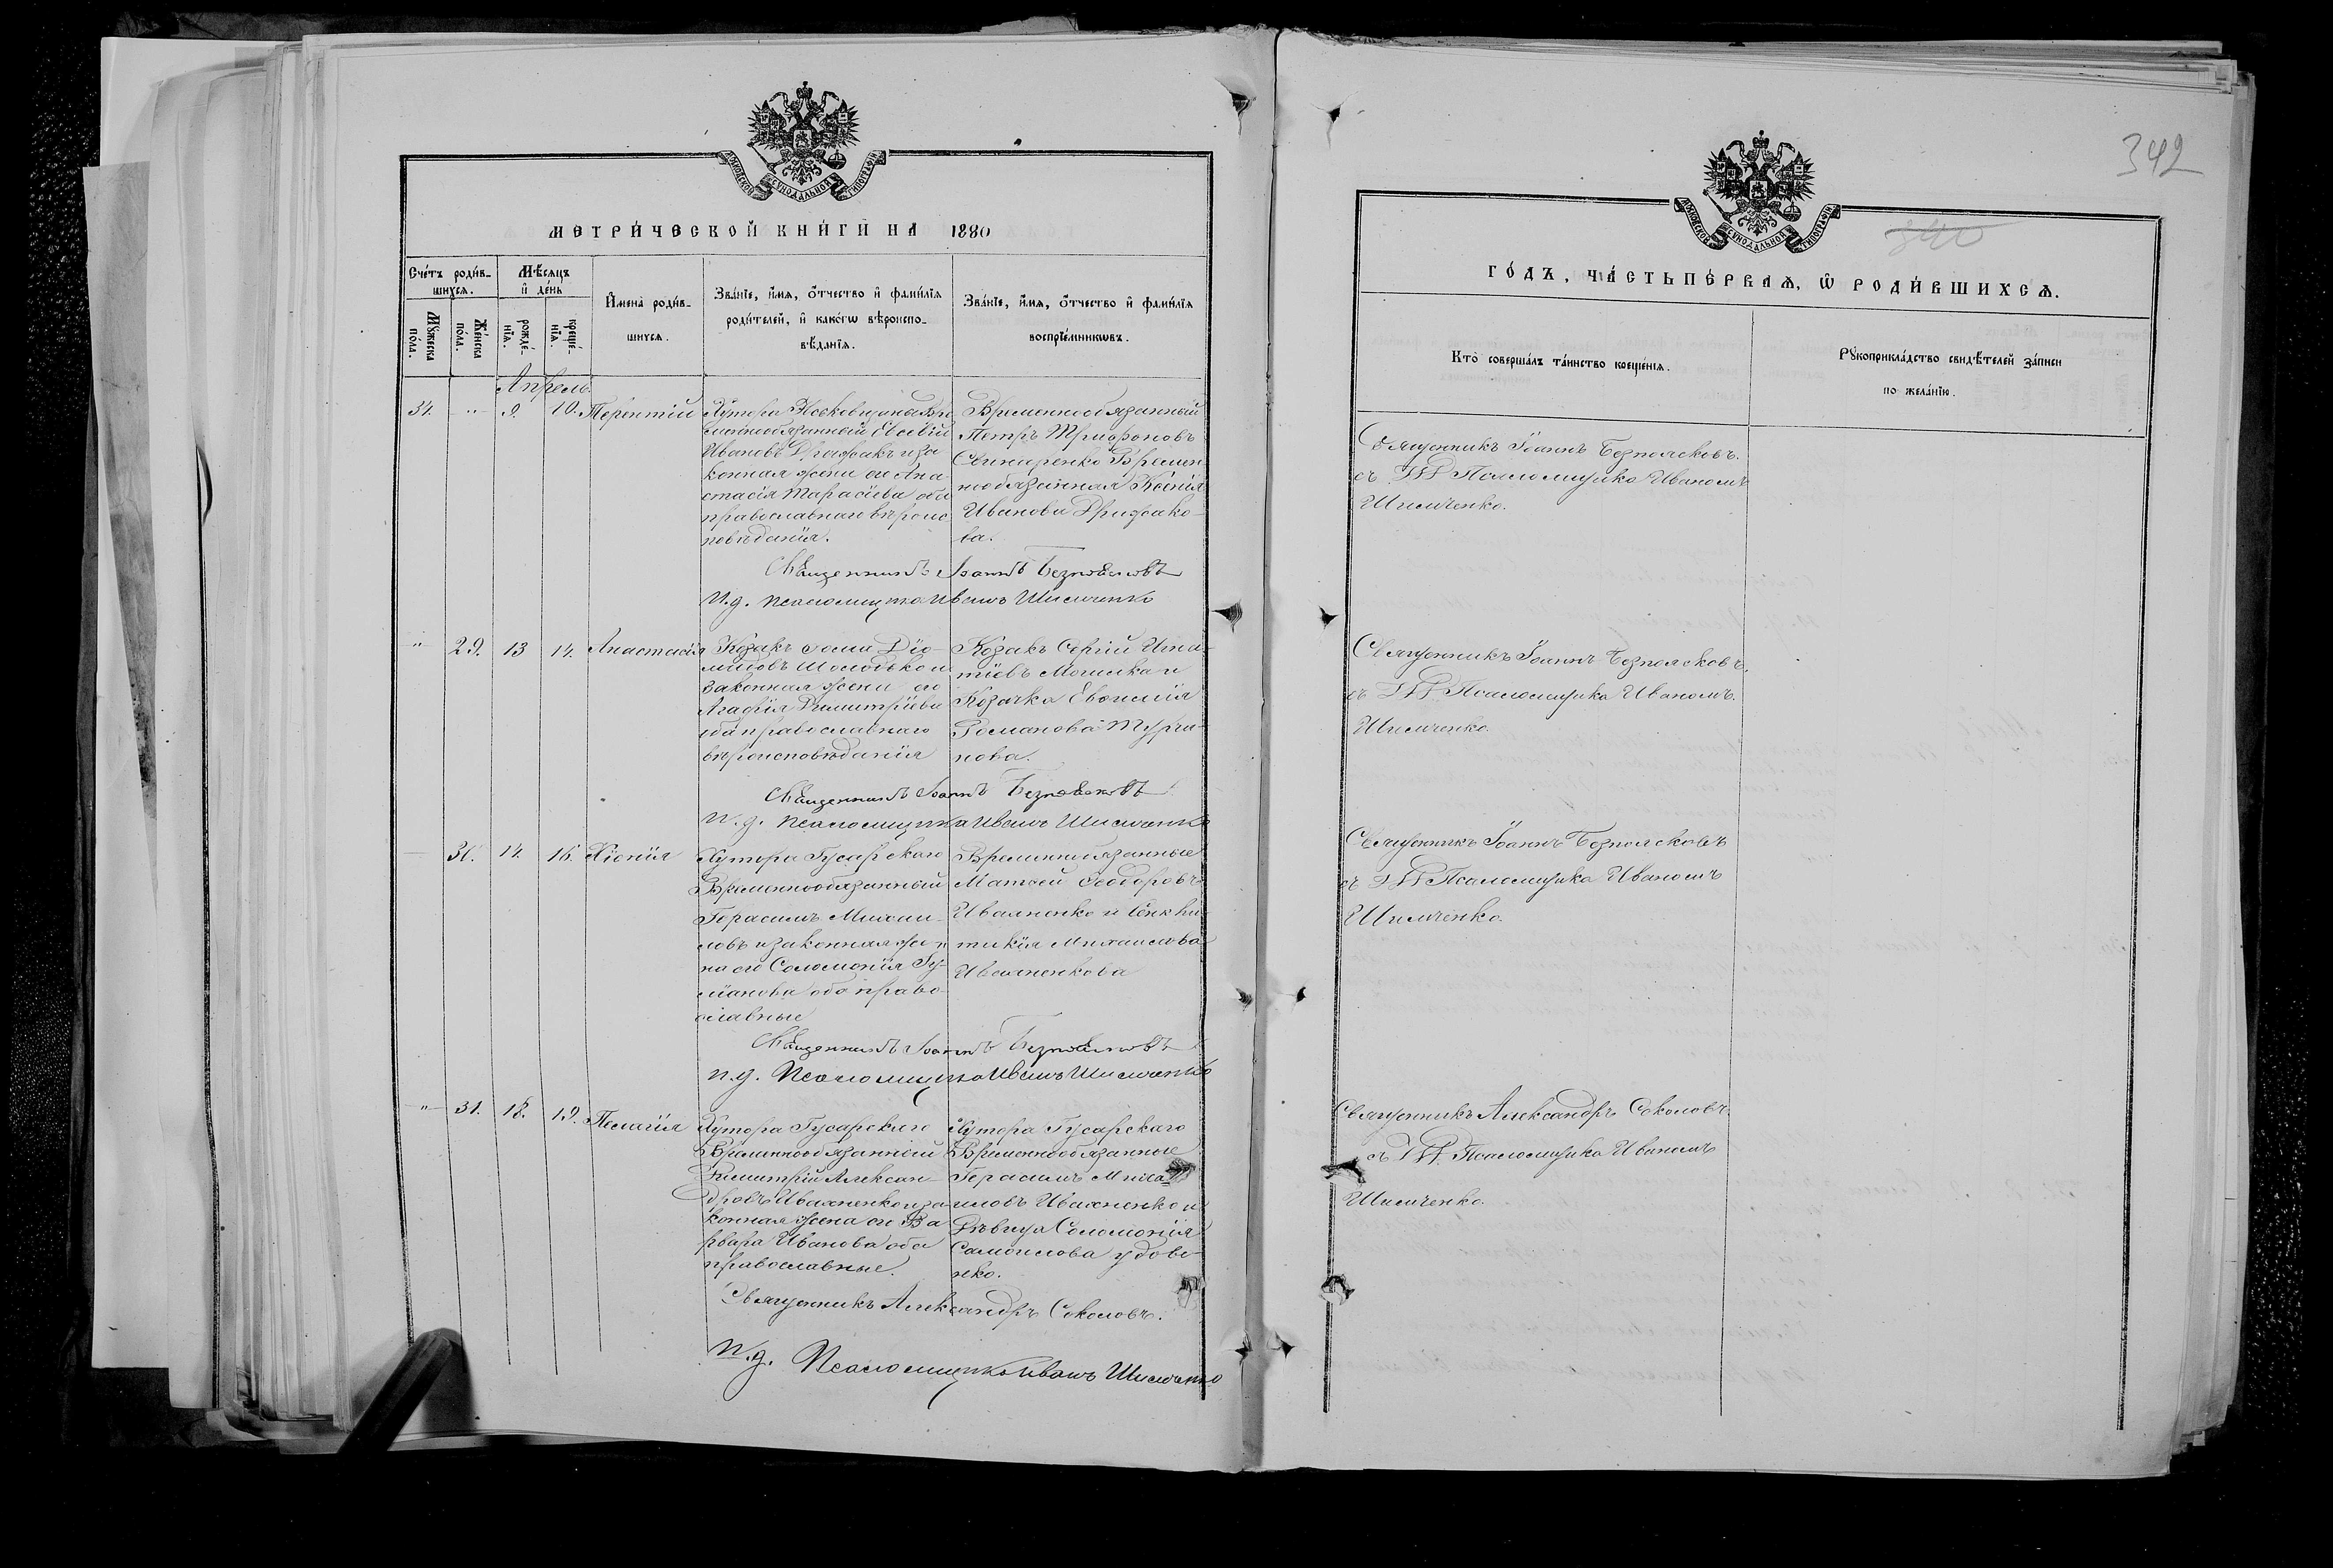 МОСКОВСКОЙ СѴНОДАЛЬНОЙ ТИПОГРАФІИ
МЕТРИ́ЧЕСКОЙ КНИ́ГИ НА 1880
Сче́тъ роди́в-
шихсѧ.
Мѣ́сѧцъ
и҆ де́нь
И҆мена̀ роди́в-
шихсѧ.
Зва́нїе, и҆́мѧ, ѻ҆́тчество и҆ фами́лїѧ
роди́телей, и҆ како́гѡ вѣроиспо-
вѣ́данїѧ.
Зва́нїе, и҆́мѧ, ѻ҆́тчество и҆ фами́лїѧ
воспрїе́мникѡвъ.
Мꙋ́жеска
по́ла.
Же́нска
по́ла.
рожде́-
нїѧ.
креще́-
нїѧ.
Апрель
34. " 9. 10. Терентій
Хутора
Временнообязанный Евсевій
Ивановъ и за
конная жена его Ана
стасія Тарасіева оба
православнаго вѣроис
повѣданія.
Временнообязанный
Петръ Трифоновъ
Свинаренко Времен
нообязанная Ксенія
Иванова
ва.
Священникъ Іоаннъ Безпоясковъ
И.д. Псаломщика Иванъ Шимченко
" 29. 13 14. Анастасія
Козакъ Діо-
мидовъ и
законная жена его
Агафія Димитріева
оба православнаго
вѣроисповѣданія
Козакъ Сергій Игна-
тіевъ и
Козачка Евфимія
Романова
нова.
Священникъ Іоаннъ Безпоясковъ
И.д. Псаломщика Иванъ Шимченко
30. 14. 16. Хіонія
Хутора Гусарскаго
Временнообязанный
Герасимъ Михаи-
ловъ и законная же-
на его Соломонія
оба право-
славные
Временнообязанные
Матѳей Ѳеодоровъ
Ивахненко и
Михаилова
Ивахненкова
Священникъ Іоаннъ Безпоясковъ
И.д. Псаломщика Иванъ Шимченко
" 31. 18. 19. Пелагія
Хутора Гусарскаго
Временнообязанный
Димитрій Алексан-
дровъ Ивахненко и за-
конная жена его Ва
рвара Иванова оба
православные.
Хутора Гусарскаго
Временнообязанные
Герасимъ Миха
иловъ Ивахненко и
Дѣвица Соломонія
Самоилова Удове-
нко.
Священникъ Александръ Соколовъ.
И.д. Псаломщика Иванъ Шимченко
342
340
МОСКОВСКОЙ СѴНОДАЛЬНОЙ ТИПОГРАФІИ
ГО́ДЪ, ЧА́СТЬ ПЕ́РВАѦ, Ѡ҆ РОДИ́ВШИХСѦ.
Кто̀ соверша́лъ та́инство креще́нїѧ.
Рꙋкоприкла́дство свидѣ́телей за́писи
по жела́нїю.
Священникъ Іоаннъ Безпоясковъ.
съ И.Д. Псаломщика Иваномъ
Шимченко.
Священникъ Іоаннъ Безпоясковъ.
съ И.Д. Псаломщика Иваномъ.
Шимченко.
Священникъ Іоаннъ Безпоясковъ
съ И.Д. Псаломщика Иваномъ
Шимченко.
Священникъ Александръ Соколовъ.
съ И.Д. Псаломщика Иваномъ
Шимченко.